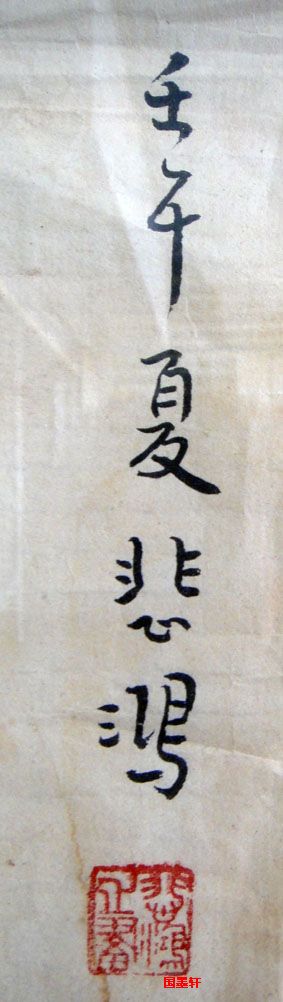 壬午夏悲鸿
国墨轩